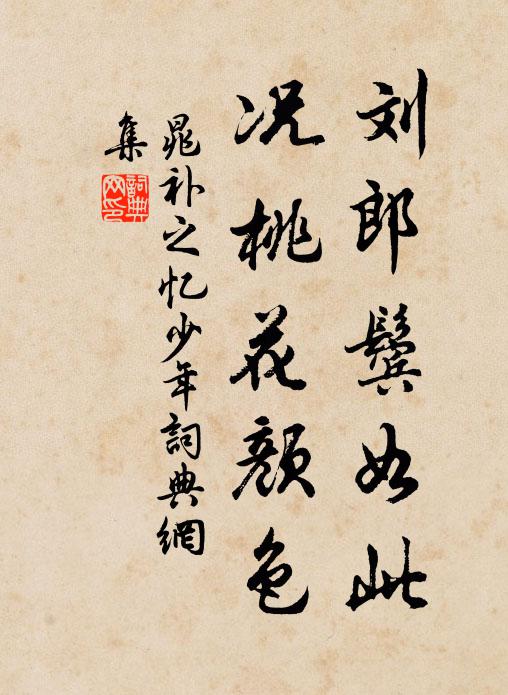 刘郎鬓如此
况桃花颜色
晁补之忆少年詞典網
集
詞典
网印